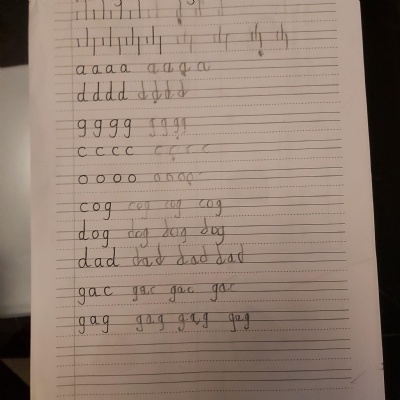 a a a a a a a a
d d d d d d d d
g g g g g g g g
c c c c c c c c
o o o o o o o o
cog cog cog cog
dog dog dog dog
dad dad dad dad
gac gac gac gac
gag gag gag gag